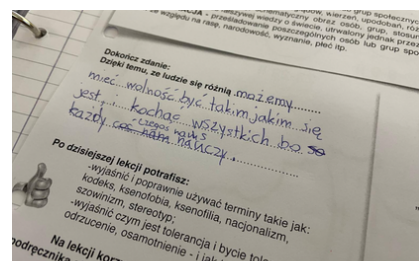 wierzeń, upodobań, róż
matyczny obraz osób, grup, stosun
wiedzy o świecie, utrwalony jednak przez
- prześladowanie poszczególnych osób lub grup spo
ze względu na rasę, narodowość, wyznanie, płeć itp.
Dokończ zdanie:
Dzięki temu, że ludzie się różnią możemy
mieć wolność być takim jakim się
jest, kochać wszystkich bo
każdy coś nam czegoś nauczy.
Po dzisiejszej lekcji potrafisz:
-wyjaśnić i poprawnie używać terminy takie jak:
kodeks, ksenofobia, ksenofilia, nacjonalizm,
szowinizm, stereotyp;
-wyjaśnić czym jest tolerancja i bycie tole
odrzucenie, osamotnienie - i jak
Na lekcji korz
podręcznika